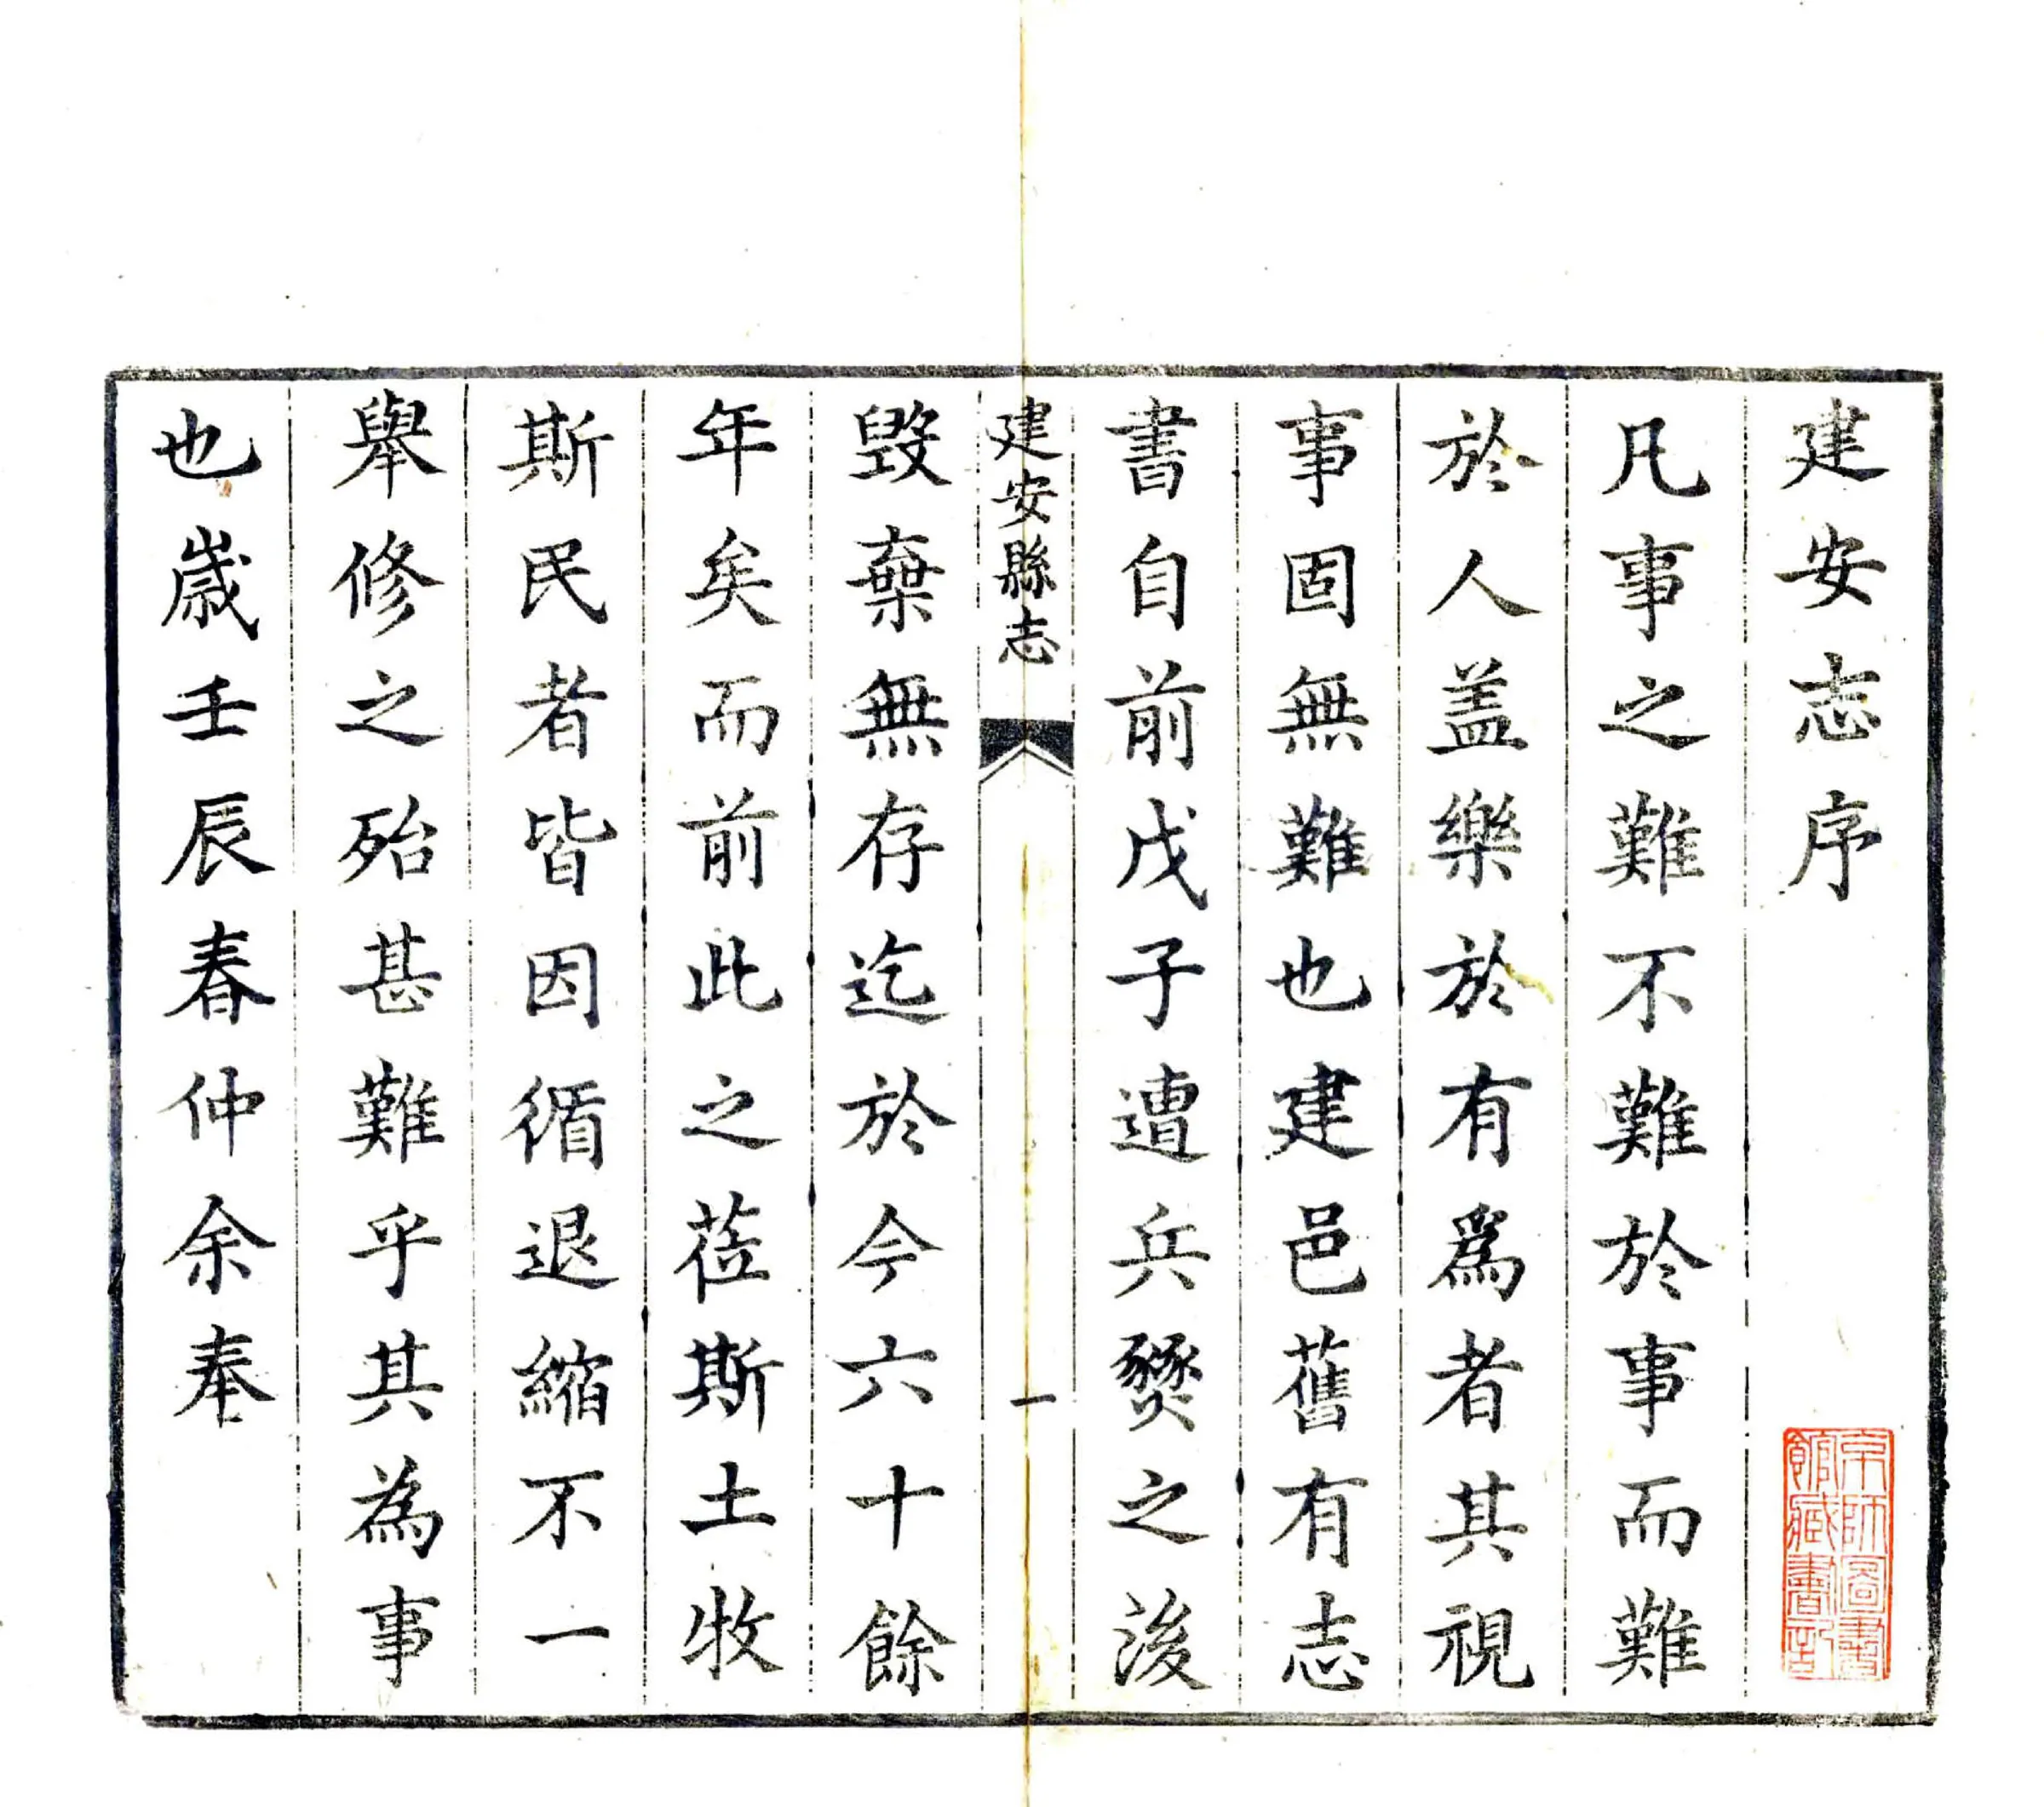 建安志序
凡事之難不難於事而難
於人盖樂於有爲者其視
事固無難也建邑舊有志
書自前戊子遭兵燹之後
建安縣志
一
毀棄無存迄於今六十餘
年矣而前此之莅斯土牧
斯民者皆因循退縮不一
舉修之殆甚難乎其為事
也歲壬辰春仲余奉
京師圖書
館藏書記